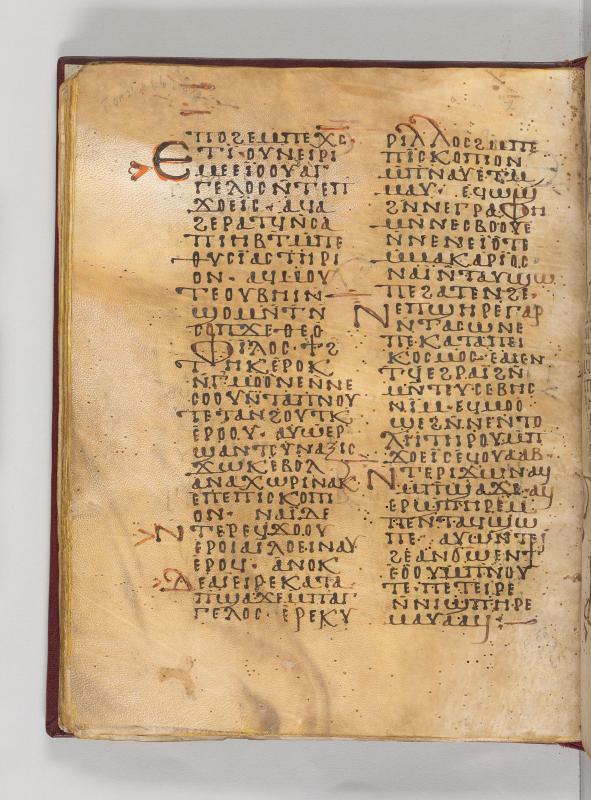 ⲡⲛⲟϭ ⲙⲡⲉⲭⲥ
ⲉⲧⲓ ⲟⲩⲛ ⲉⲓⲣⲓ
ⲙⲉⲉⲓ ⲟⲩⲁⲅ
ⲅⲉⲗⲟⲥ ⲛⲧⲉⲡ
ϫⲟⲉⲓⲥ· ⲁϥⲁ
ϩⲉⲣⲁⲧϥ ⲛⲥⲁ
ⲑⲩⲥⲓⲁⲥⲧⲏⲣⲓ
ⲟⲛ· ⲁϥⲙⲟⲩ
ⲧⲉ ⲟⲩⲃⲏⲓ ⲛ
ϣⲟⲙⲛⲧ ⲛ
ⲥⲟⲡ ϫⲉ ⲑⲉⲟ
ⲫⲓⲗⲟⲥ· ϯϩ
ⲧⲏⲕ ⲉⲣⲟⲕ
ⲥⲟⲟⲩⲛ ⲧⲁⲓ ⲡⲛⲟⲩ
ⲧⲉ ⲧⲁⲛϩⲟⲩⲧⲕ
ⲉⲣⲟⲟⲩ· ⲁⲩⲱ ⲉⲣ
ϣⲁⲛ ⲧⲥⲩⲛⲁⲝⲓⲥ
ϫⲱⲕ ⲉⲃⲟⲗ
ⲁⲛⲁⲭⲱⲣⲓ ⲛⲁⲕ
ⲉⲡⲉⲡⲓⲥⲕⲟⲡⲓ
ⲟⲛ· ⲛⲁⲓ ⲇⲉ
ⲛⲧⲉⲣⲉϥϫⲟⲟⲩ
ⲉⲣⲟⲓ ⲁⲓⲗⲟ ⲉⲓⲛⲁⲩ
ⲉⲣⲟϥ· ⲁⲛⲟⲕ
ⲇⲉ ⲁⲓⲉⲓⲣⲉ ⲕⲁⲧⲁ
ⲡϣⲁϫⲉ ⲙⲡⲁⲅ
ⲅⲉⲗⲟⲥ· ⲉⲣⲉ ⲕⲩ
ⲣⲓⲗⲗⲟⲥ ϩⲙ ⲡⲉ
ⲡⲓⲥⲕⲟⲡⲓⲟⲛ
ⲙⲡⲛⲁⲩ ⲉⲧⲙ
ⲙⲁⲩ· ⲉϥⲱϣ
ϩⲛ ⲛⲉⲅⲣⲁⲫⲏ
ⲙⲛ ⲛⲉⲥⲃⲟⲟⲩⲉ
ⲛⲛⲉⲛⲉⲓⲟⲧⲉ
ⲙⲙⲁⲕⲁⲣⲓⲟⲥ
ⲛⲁⲓ ⲛⲧⲁⲩϣⲱ
ⲡⲉ ϩⲁⲧⲉⲛϩⲉ·
ⲛⲉⲡϣⲏⲣⲉ ⲅⲁⲣ
ⲛⲧⲁⲥⲱⲛⲉ
ⲡⲉ ⲕⲁⲧⲁ ⲡⲉⲓ
ⲕⲟⲥⲙⲟⲥ· ⲉⲙⲉⲛ
ⲙⲛⲧⲉⲩⲥⲉⲃⲏⲥ
ⲛⲓⲙ· ⲉϥⲙⲟⲟ
ϣⲉ ϩⲛ ⲛⲉⲛⲧⲟ
ⲗⲏ ⲧⲏⲣⲟⲩ ⲙⲡ
ϫⲟⲉⲓⲥ ⲉϥⲟⲩⲁⲁⲃ·
ⲛⲧⲉⲣⲓϫⲱ ⲛⲁϥ
ⲙⲡϣⲁϫⲉ· ⲁϥ
ⲉⲣϣⲡⲏⲣⲉ ⲙ
ⲡⲉⲛⲧⲁϥϣⲱ
ⲡⲉ· ⲁⲩⲱ ⲛⲧⲉⲓ
ϩⲉ ⲁⲛⲟⲛ ⲙⲉⲛ ϯ
ⲉⲟⲟⲩ ⲙⲡⲛⲟⲩ
ⲧⲉ· ⲡⲉⲧⲉⲓⲣⲉ
ⲛⲛⲓϣⲡⲏⲣⲉ
ⲙⲁⲩⲁⲁϥ: